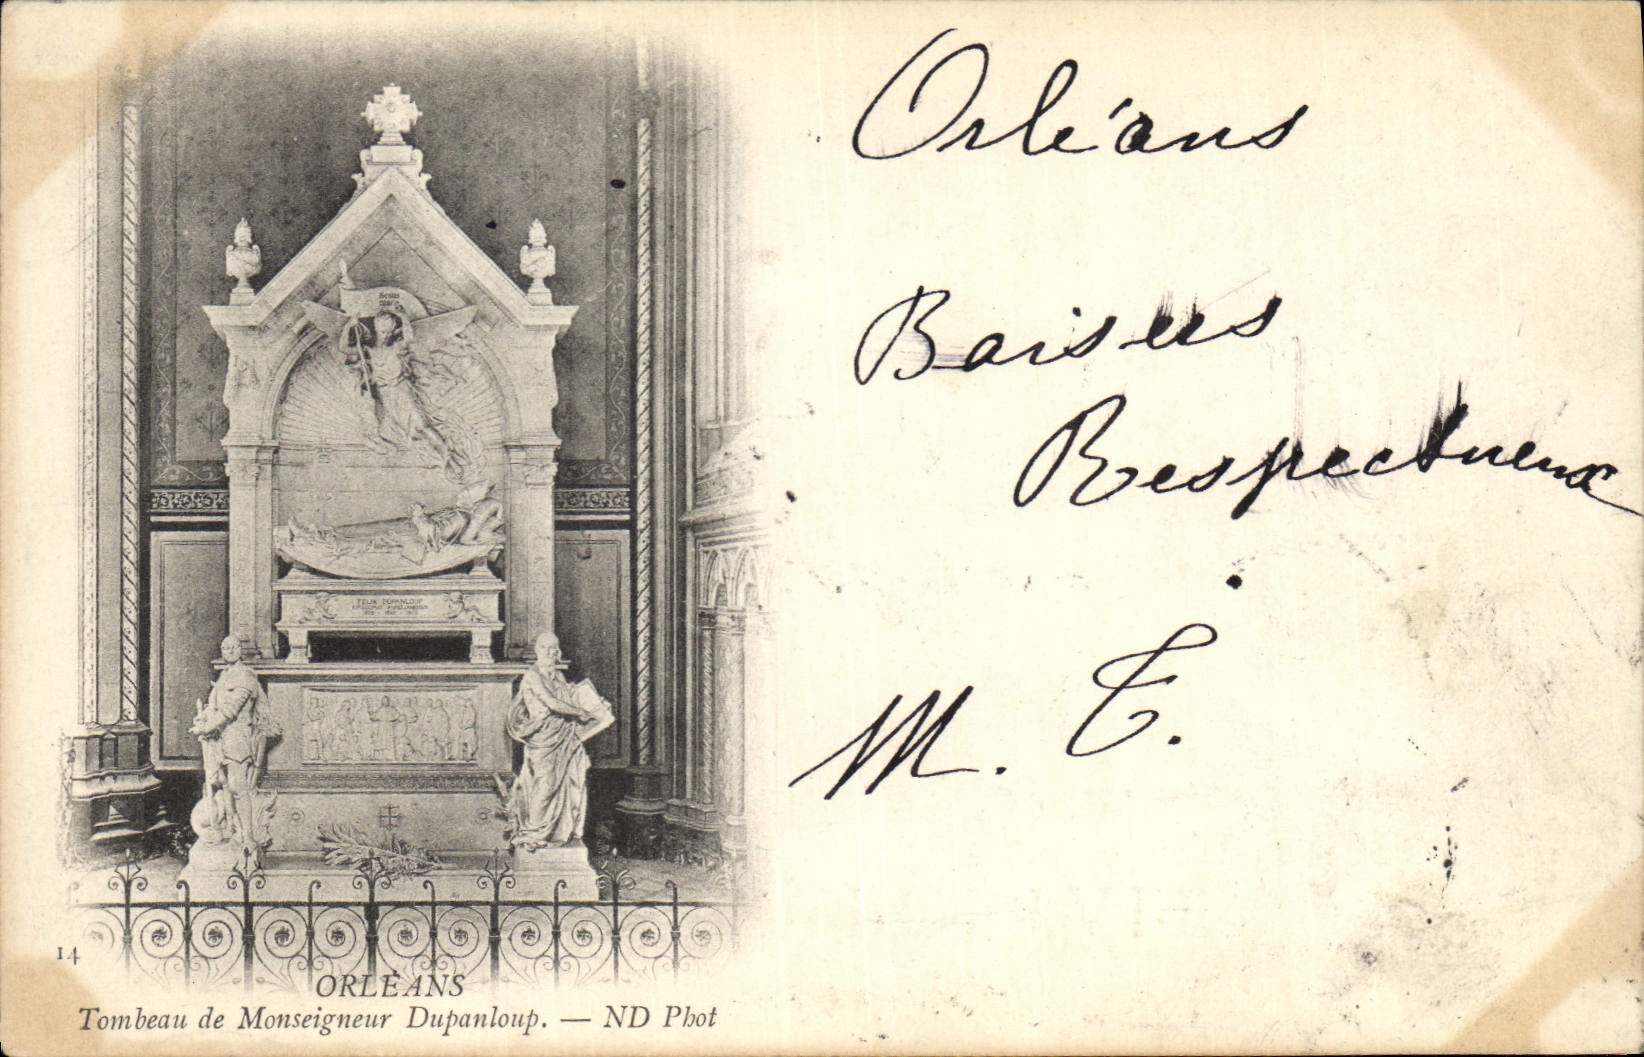 Orléans
Baisers
Respectueux
M. T.
Jesus
FELIX DUPANLOUP
14
ORLÉANS
Tombeau de Monseigneur Dupanloup. — ND Phot